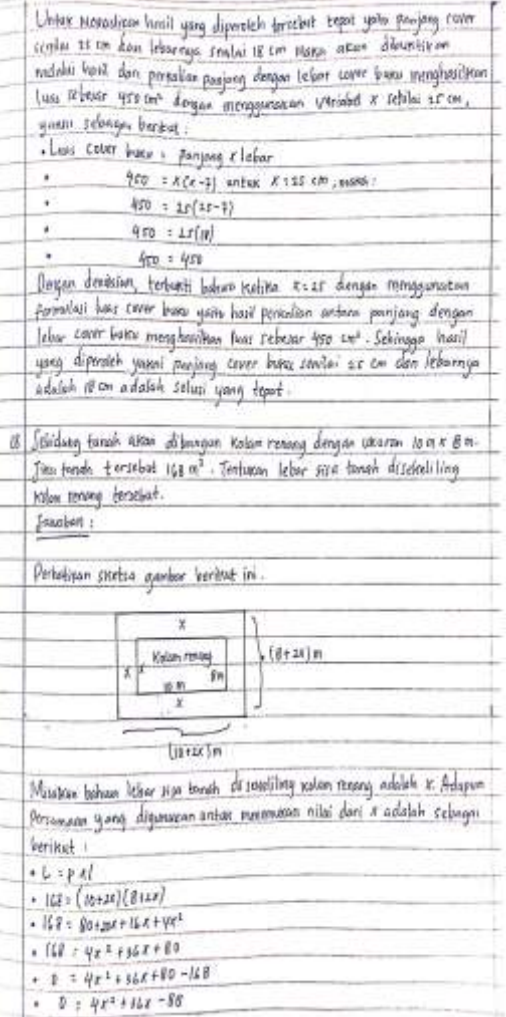 Untuk memastikan hasil yang diperoleh tersebut tepat yaitu panjang cover
senilai 25 cm dan lebarnya senilai 18 cm maka akan dibuktikan
melalui hasil dari perkalian panjang dengan lebar cover buku menghasilkan
luas sebesar 450 cm² dengan menggunakan variabel x senilai 25 cm,
yakni sebagai berikut :
• Luas cover buku = panjang x lebar
• 450 = x(x-7) untuk x = 25 cm, maka :
• 450 = 25(25-7)
• 450 = 25(18)
• 450 = 450
Dengan demikian, terbukti bahwa ketika x = 25 dengan menggunakan
formulasi luas cover buku yaitu hasil perkalian antara panjang dengan
lebar cover buku menghasilkan luas sebesar 450 cm². Sehingga hasil
yang diperoleh yakni panjang cover buku senilai 25 cm dan lebarnya
adalah 18 cm adalah solusi yang tepat.
Sebidang tanah akan dibangun kolam renang dengan ukuran 10 m x 8 m.
Jika tanah tersebut 168 m². Tentukan lebar sisa tanah disekeliling
kolam renang tersebut.
Jawaban :
Perhatikan sketsa gambar berikut ini.
x
Kolam renang
x
8 m
10 m
x
(8+2x) m
(10+2x) m
Misalkan bahwa lebar sisa tanah di sekeliling kolam renang adalah x. Adapun
persamaan yang digunakan untuk menemukan nilai dari x adalah sebagai
berikut :
• L = p x l
• 168 = (10+2x)(8+2x)
• 168 = 80+20x+16x+4x²
• 168 = 4x²+36x+80
• 0 = 4x²+36x+80-168
• 0 = 4x²+36x-88